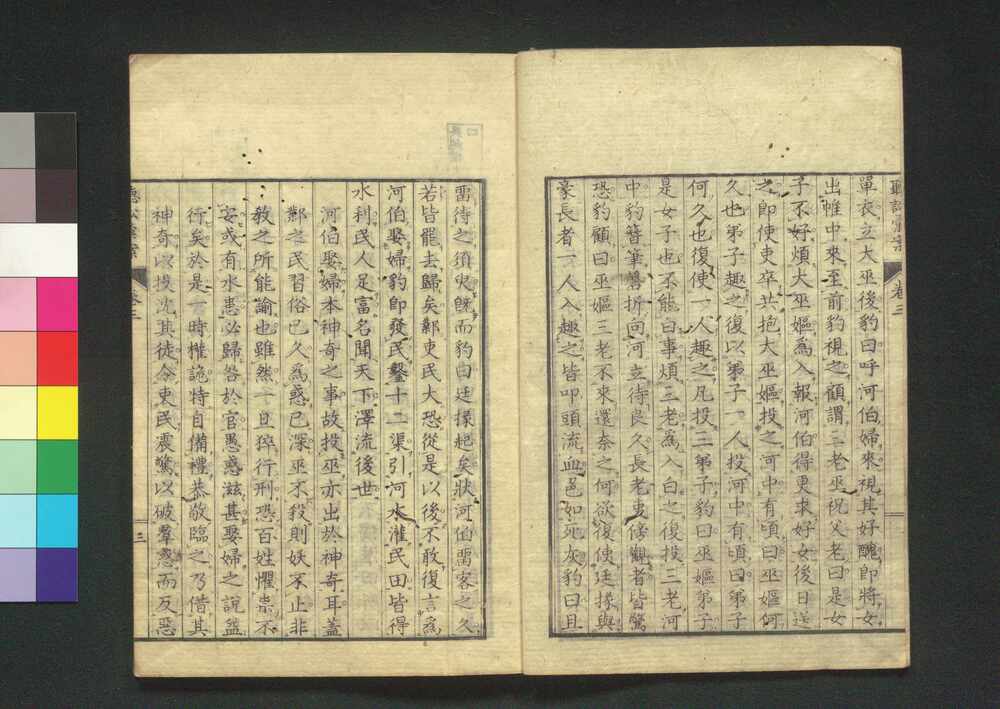 聽訟彙案 卷三
單衣立大巫後豹曰呼河伯婦來視其好醜即將女
出帷中來至前豹視之顧謂三老巫祝父老曰是女
子不好煩大巫嫗為入報河伯得更求好女後日送
之即使吏卒共抱大巫嫗投之河中有頃曰巫嫗何
久也弟子趣之復以弟子一人投河中有頃曰弟子
何久也復使一人趣之凡投三弟子豹曰巫嫗弟子
是女子也不能白事煩三老為入白之復投三老河
中豹簪筆磬折向河立待良久長老吏傍觀者皆驚
恐豹顧曰巫嫗三老不來還奈之何欲復使廷掾與
豪長者一人入趣之皆叩頭流血色如死灰豹曰且
留待之須臾既而豹曰廷掾起矣狀河伯留客之久
若皆罷去歸矣鄴吏民大恐從是以後不敢復言為
河伯娶婦豹即發民鑿十二渠引河水灌民田皆得
水利民人足富名聞天下澤流後世
河伯娶婦本神奇之事故投巫亦出於神奇耳蓋
鄴之民習俗已久為惑已深巫不投則妖不止非
教之所能諭也雖然一旦猝行刑恐百姓懼祟不
安或有水患必歸咎於官愚惑滋甚娶婦之說益
行矣於是一時權詭特自備禮恭敬臨之乃借其
神奇以投沈其徒令吏民震驚以破羣惑而反惡
聽訟彙案 卷三
三